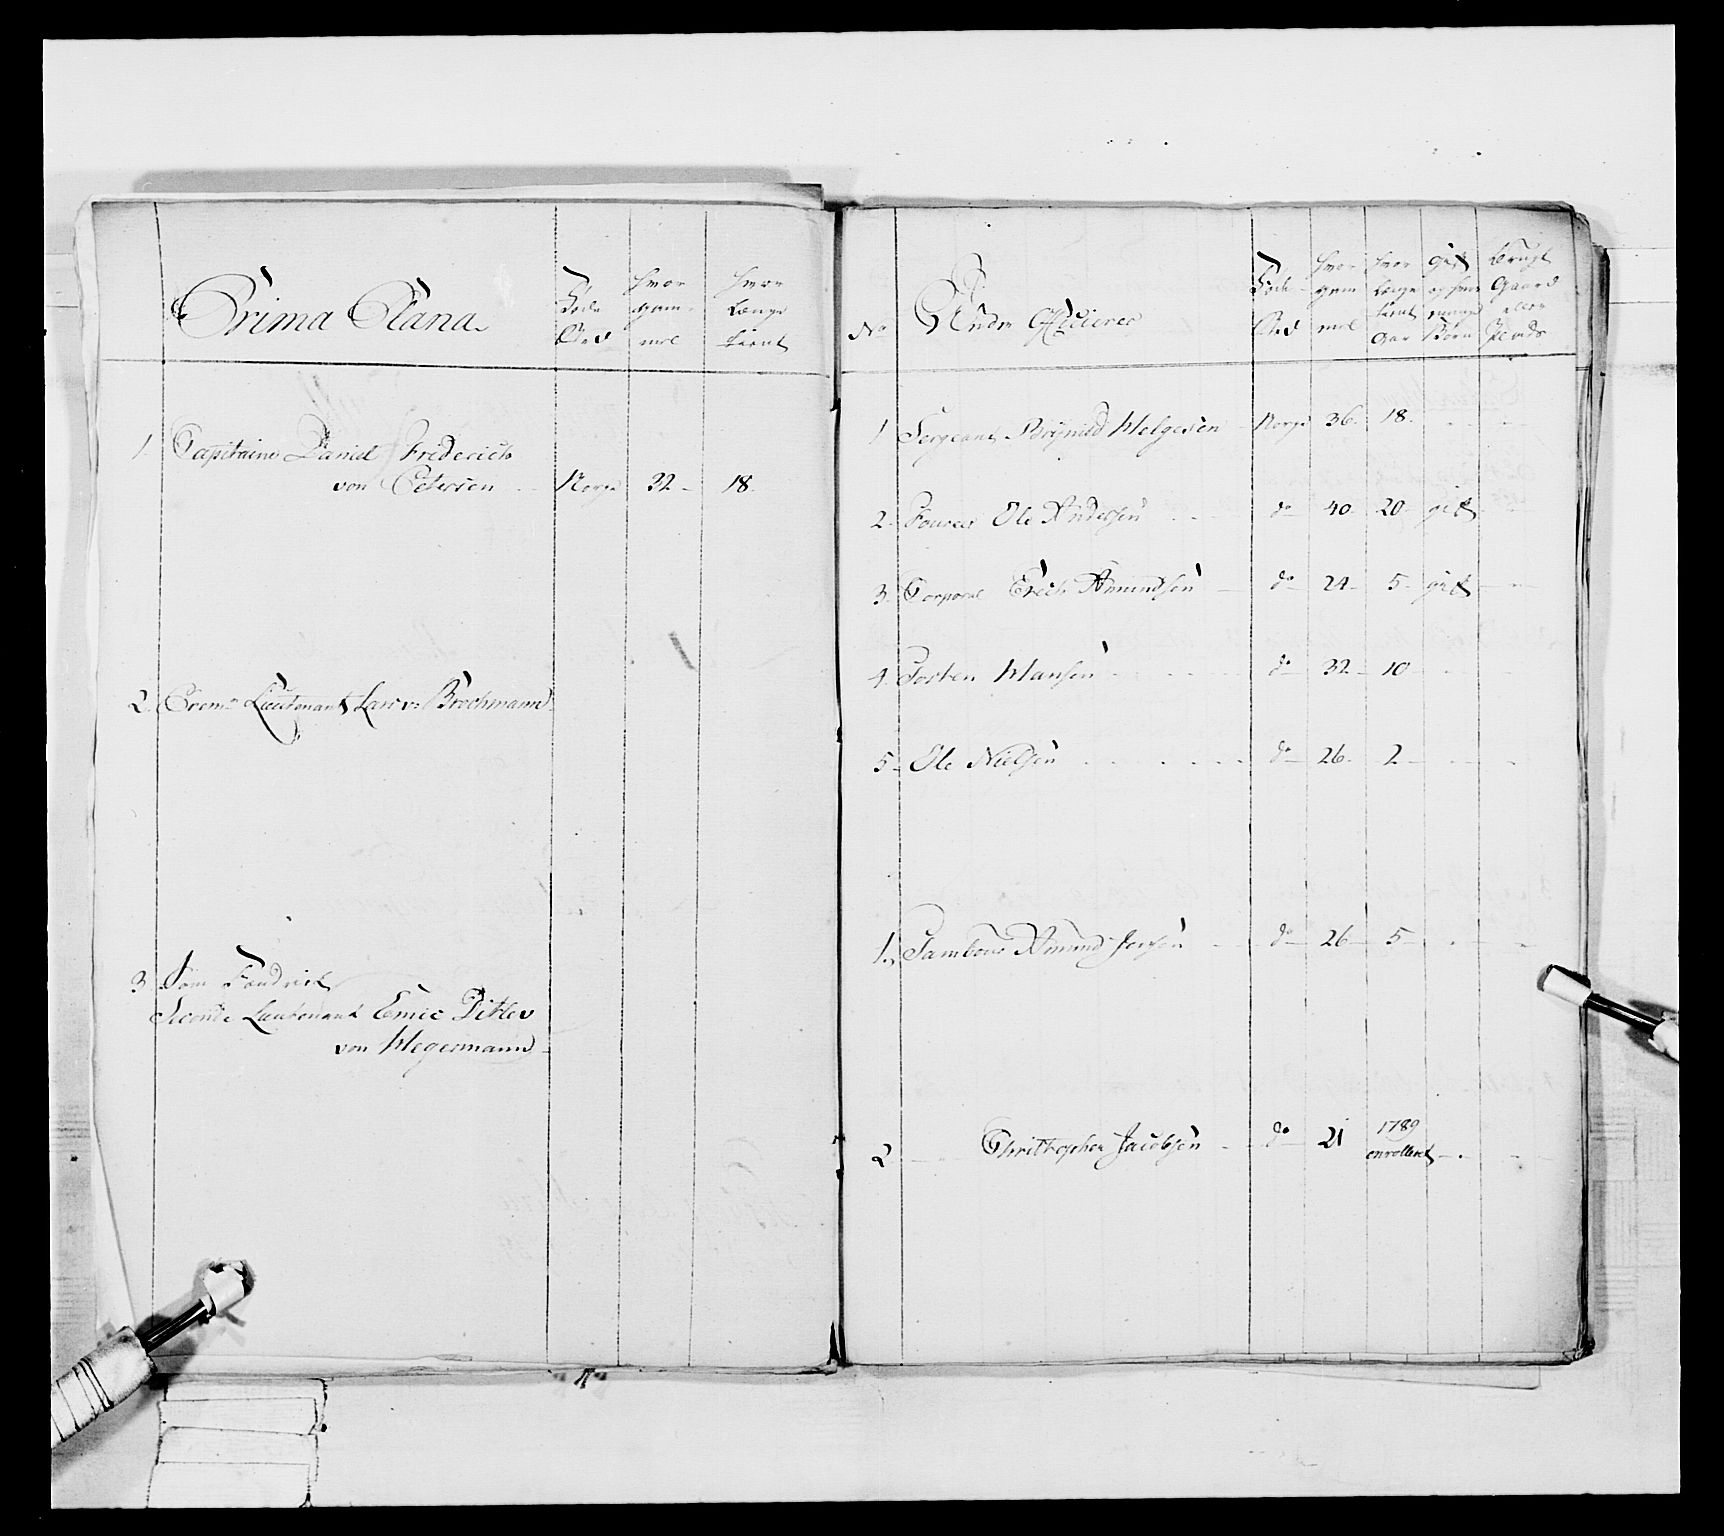 Prima Plana
Føde Sted
Hvor gam- mel
Hvor Længe tient
1 Capitaine Daniel Frederich
von Petersen Norge 32 18
2. Prem: Lieutenant Lars v: Brochmann
3 Som Fendrich
Seconde Lieutenant Emic Ditlev
von Wegermann
No Under Officierer
Føde Sted
Hvor gam mel
Hvor Længe tient Aar
gift og hvor mange Børn
Brugt Gaard eller Plads
1 Sergeant Brynild Helgesen Norge 36. 18.
2. Fourer Ole Andersen do 40. 20 gift
3. Corporal Erich Amundsen do 24 5 gift
4. Torben Hansen do 32 10
5 Ole Nielsen do 26. 2
1. Tambour Amund Jensen do 26 5
2 Christopher Jacobsen do 21 1789
enrollert